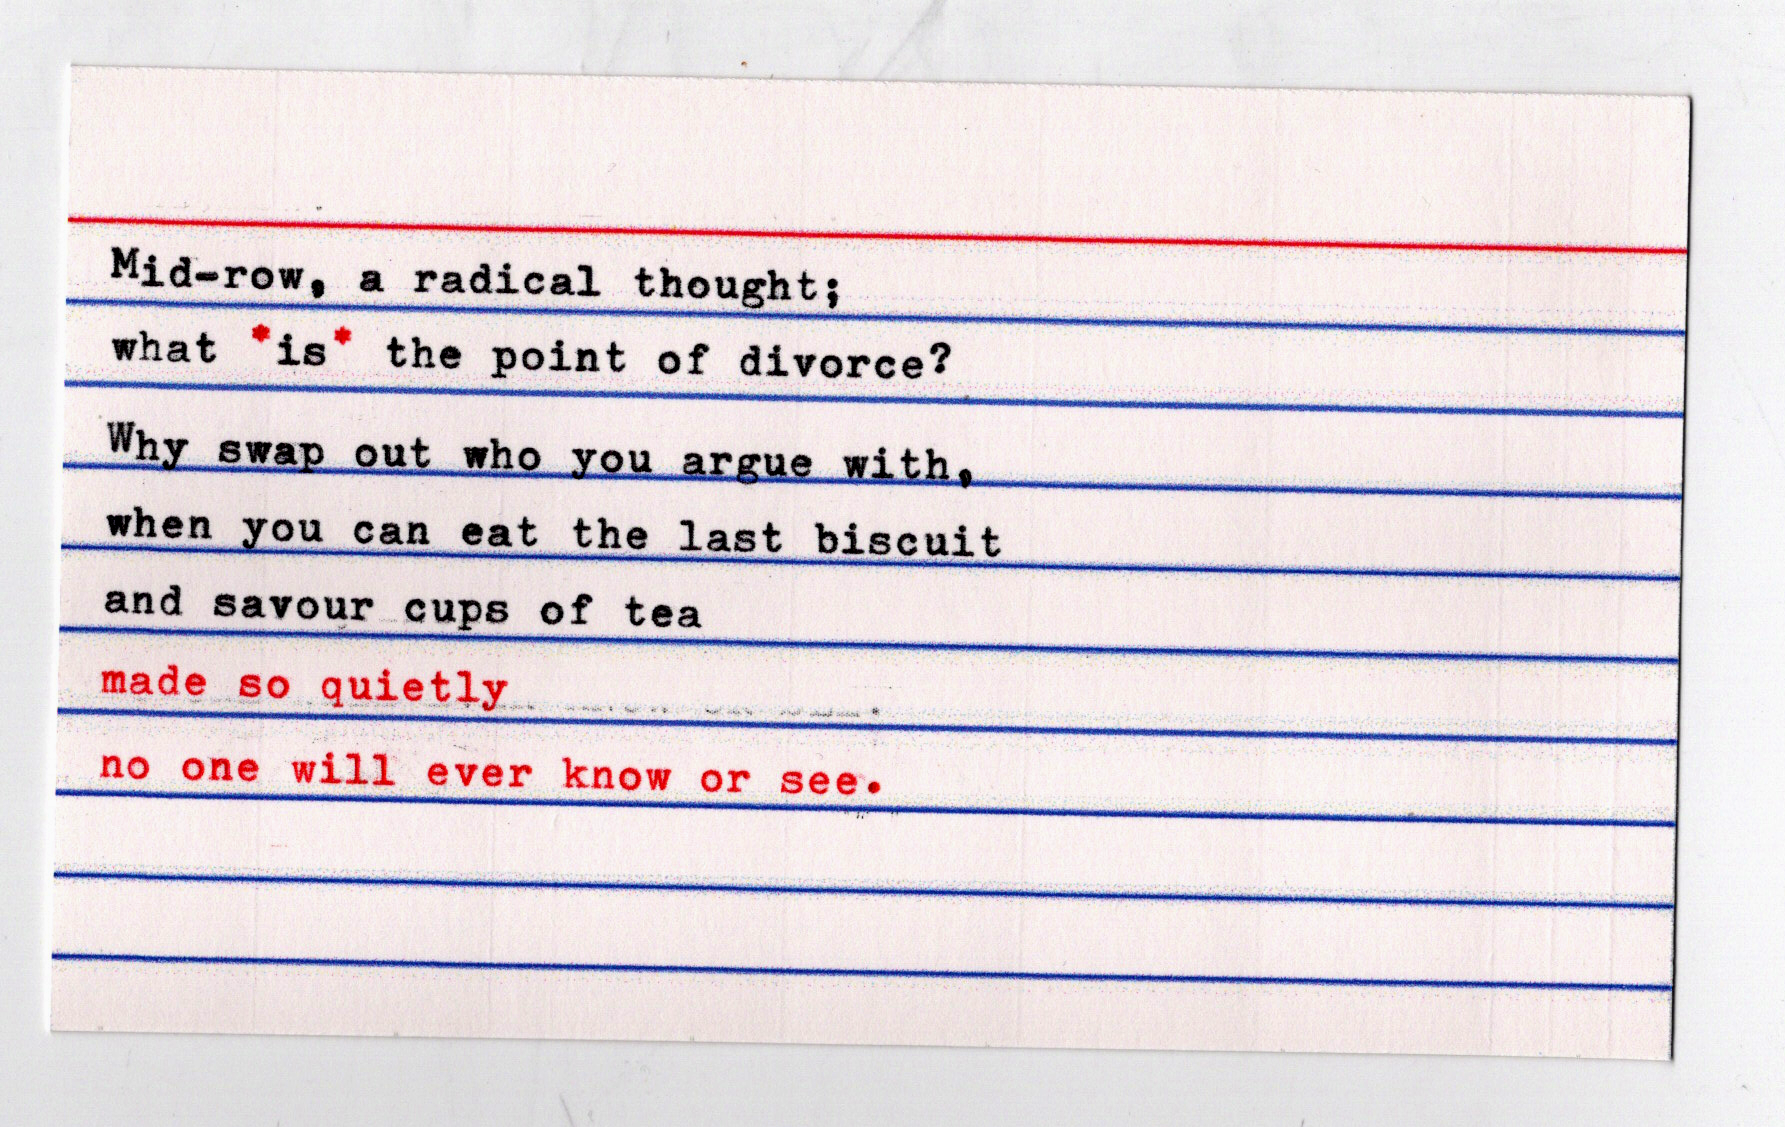 Mid-row, a radical thought;
what *is* the point of divorce?
Why swap out who you argue with,
when you can eat the last biscuit
and savour cups of tea
made so quietly
no one will ever know or see.